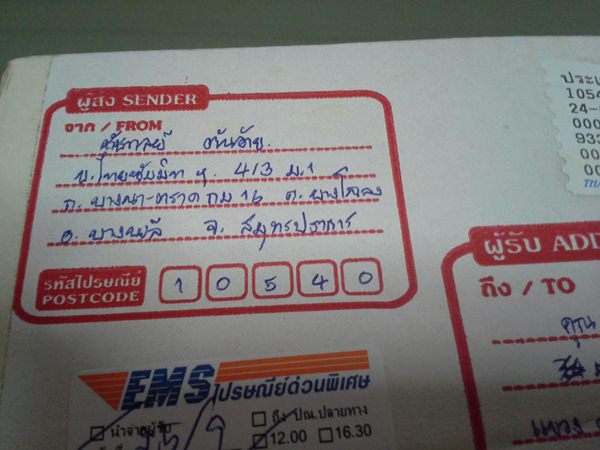 ผู้ส่ง SENDER
จาก / FROM
บ.ไทยซัมมิท 4/3 ม.1
ถ. บางนา-ตราด กม 16 ต. บางโฉลง
อ. บางพลี จ. สมุทรปราการ
รหัสไปรษณีย์
POSTCODE
1 0 5 4 0
EMS ไปรษณีย์ด่วนพิเศษ
นำจ่ายผู้รับ
ถึง ปณ.ปลายทาง
12.00 16.30
1054
24-
000
93
00
00
ผู้รับ ADD
ถึง / TO
คุณ